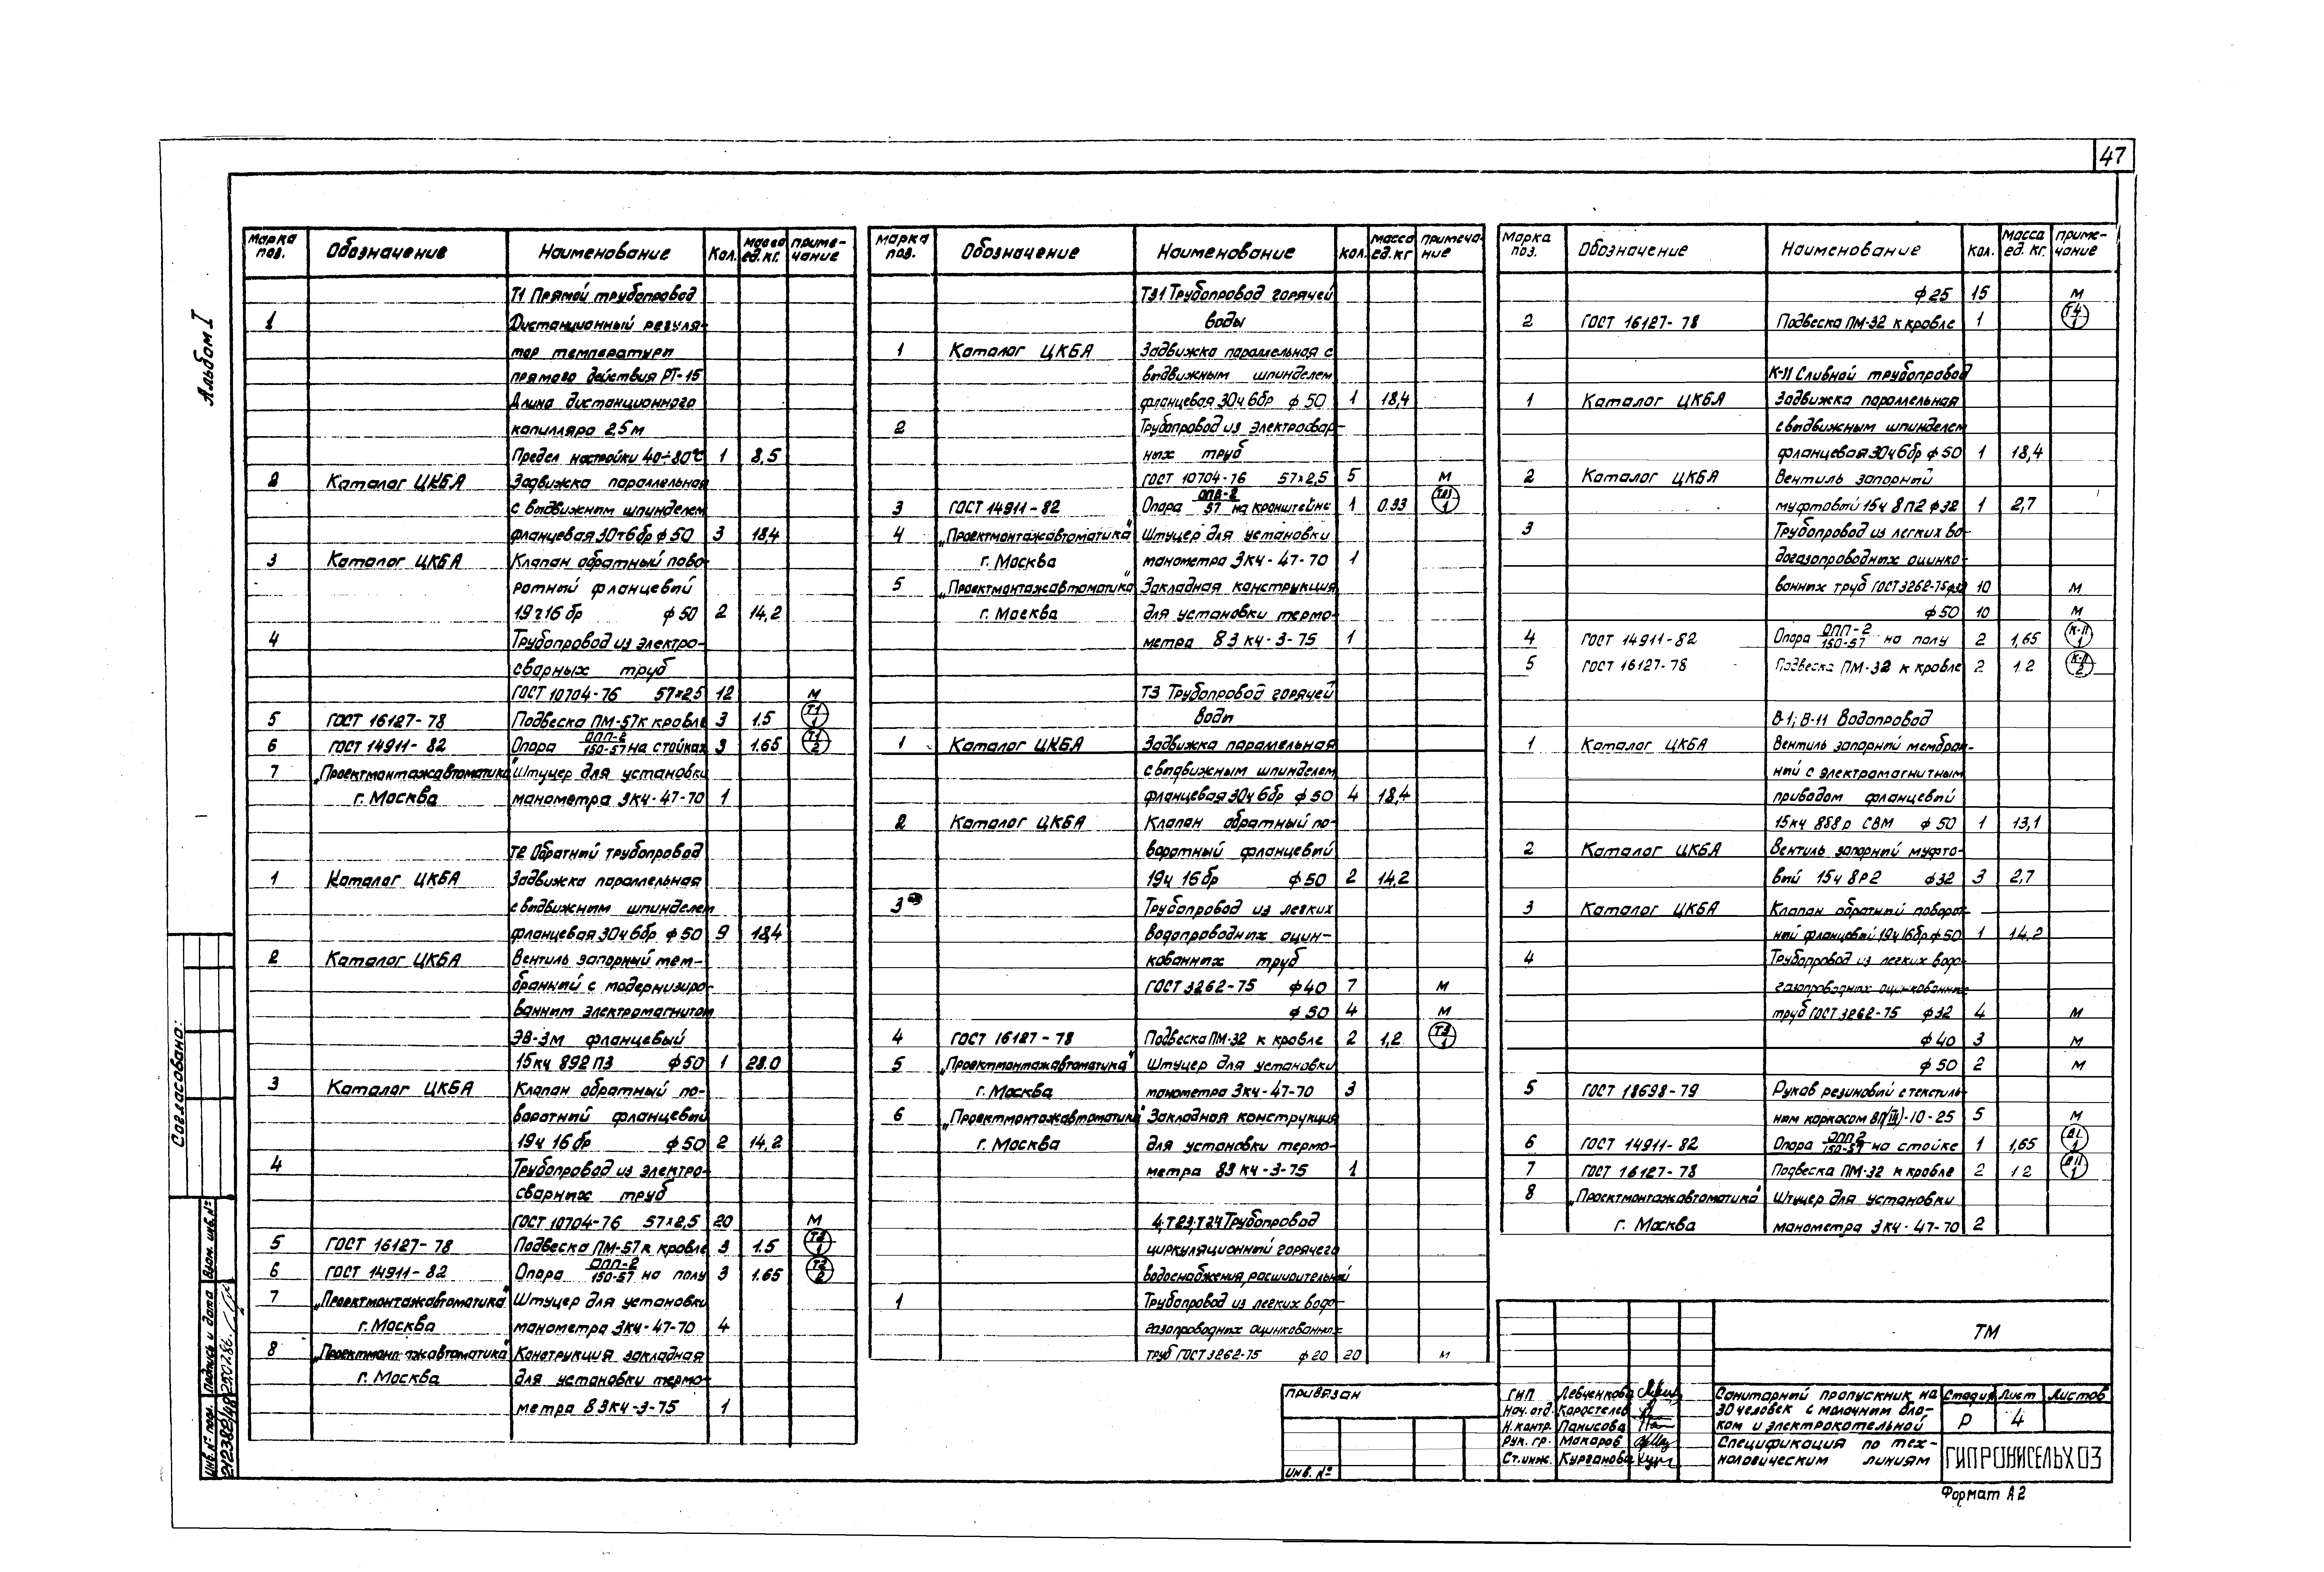 47
Альбом I
Марка поз. Обозначение Наименование Кол. Масса ед. кг. Примечание
Т1 Прямой трубопровод
1 Дистанционный регуля-
тор температуры
прямого действия РТ-15
Длина дистанционного
капилляра 2,5м
Предел настройки 40÷80°С 1 8,5
2 Каталог ЦКБА Задвижка параллельная
с выдвижным шпинделем
фланцевая 30ч6бр ф50 3 18,4
3 Каталог ЦКБА Клапан обратный пово-
ротный фланцевый
19ч16бр ф50 2 14,2
4 Трубопровод из электро-
сварных труб
ГОСТ 10704-76 57×2,5 12 М
5 ГОСТ 16127-78 Подвеска ПМ-57 к кровле 3 1.5 Т1/1
6 ГОСТ 14911-82 Опора ОПП-2/150-57 на стойках 3 1.65 Т1/2
7 „Проектмонтажавтоматика" Штуцер для установки
г. Москва манометра ЗКЧ-47-70 1
Т2 Обратный трубопровод
1 Каталог ЦКБА Задвижка параллельная
с выдвижным шпинделем
фланцевая 30ч6бр ф50 9 18,4
2 Каталог ЦКБА Вентиль запорный мем-
бранный с модернизиро-
ванным электромагнитом
ЭВ-3М фланцевый
15кч 892 П3 ф50 1 28.0
3 Каталог ЦКБА Клапан обратный по-
воротный фланцевый
19ч 16бр ф50 2 14,2
4 Трубопровод из электро-
сварных труб
ГОСТ 10704-76 57×2,5 20 М
5 ГОСТ 16127-78 Подвеска ПМ-57 к кровле 3 1.5 Т2/1
6 ГОСТ 14911-82 Опора ОПП-2/150-57 на полу 3 1.65 Т2/2
7 „Проектмонтажавтоматика" Штуцер для установки
г. Москва манометра ЗКЧ-47-70 4
8 „Проектмонтажавтоматика" Конструкция закладная
г. Москва для установки термо-
метра 8ЗКЧ-3-75 1
Марка поз. Обозначение Наименование Кол. Масса ед. кг Примечание
Т31 Трубопровод горячей
воды
1 Каталог ЦКБА Задвижка параллельная с
выдвижным шпинделем
фланцевая 30ч6бр ф50 1 18,4
2 Трубопровод из электросвар-
ных труб
ГОСТ 10704-76 57×2,5 5 М
3 ГОСТ 14911-82 Опора ОПБ-2/57 на кронштейне 1 0.93 Т31/1
4 „Проектмонтажавтоматика" Штуцер для установки
г. Москва манометра ЗКЧ-47-70 1
5 „Проектмонтажавтоматика" Закладная конструкция
г. Москва для установки термо-
метра 8ЗКЧ-3-75 1
Т3 Трубопровод горячей
воды
1 Каталог ЦКБА Задвижка параллельная
с выдвижным шпинделем
фланцевая 30ч6бр ф50 4 18,4
2 Каталог ЦКБА Клапан обратный по-
воротный фланцевый
19ч 16бр ф50 2 14.2
3 Трубопровод из легких
водопроводных оцин-
кованных труб
ГОСТ 3262-75 ф40 7 М
ф50 4 М
4 ГОСТ 16127-78 Подвеска ПМ-32 к кровле 2 1,2 Т3/1
5 „Проектмонтажавтоматика" Штуцер для установки
г. Москва манометра ЗКЧ-47-70 3
6 „Проектмонтажавтоматика" Закладная конструкция
г. Москва для установки термо-
метра 8ЗКЧ-3-75 1
4,Т23,Т24 Трубопровод
циркуляционный горячего
водоснабжения, расширительный
1 Трубопровод из легких водо-
газопроводных оцинкованных
труб ГОСТ 3262-75 ф20 20 М
Марка поз. Обозначение Наименование Кол. Масса ед. кг. Примечание
ф25 15 М
2 ГОСТ 16127-78 Подвеска ПМ-32 к кровле 1 Т4/1
К-11 Сливной трубопровод
1 Каталог ЦКБА Задвижка параллельная
с выдвижным шпинделем
фланцевая 30ч6бр ф50 1 18,4
2 Каталог ЦКБА Вентиль запорный
муфтовый 15ч 8п2 ф32 1 2,7
3 Трубопровод из легких во-
догазопроводных оцинко-
ванных труб ГОСТ 3262-75 ф32 10 М
ф50 10 М
4 ГОСТ 14911-82 Опора ОПП-2/150-57 на полу 2 1,65 К-11/1
5 ГОСТ 16127-78 Подвеска ПМ-32 к кровле 2 1.2 К-11/2
В-1; В-11 Водопровод
1 Каталог ЦКБА Вентиль запорный мембран-
ный с электромагнитным
приводом фланцевый
15кч 888р СВМ ф50 1 13,1
2 Каталог ЦКБА Вентиль запорный муфто-
вый 15ч 8Р2 ф32 3 2,7
3 Каталог ЦКБА Клапан обратный поворот-
ный фланцевый 19ч16бр ф50 1 14,2
4 Трубопровод из легких водо-
газопроводных оцинкованных
труб ГОСТ 3262-75 ф32 4 М
ф40 3 М
ф50 2 М
5 ГОСТ 18698-79 Рукав резиновый с текстиль-
ным каркасом ВГ(III)-10-25 5 М
6 ГОСТ 14911-82 Опора ОПП2/150-57 на стойке 1 1,65 В1/1
7 ГОСТ 16127-78 Подвеска ПМ-32 к кровле 2 1.2 В11/1
8 „Проектмонтажавтоматика" Штуцер для установки
г. Москва манометра ЗКЧ-47-70 2
Согласовано:
Инв. № подл. Подпись и дата Взам. инв. №
Привязан
Инв. №
ТМ
ГИП Левченкова
Нач. отд. Коростелев
Н. контр. Панисова
Рук. гр. Макаров
Ст. инж. Курганова
Санитарный пропускник на
30 человек с молочным бло-
ком и электрокотельной
Стадия Лист Листов
Р 4
Спецификация по тех-
нологическим линиям
ГИПРОНИСЕЛЬХОЗ
Формат А2